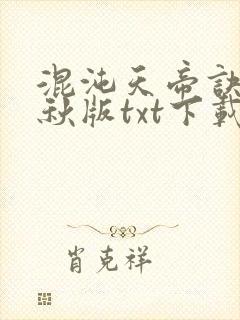 混沌天帝訣
秋版txt下載
肖克祥